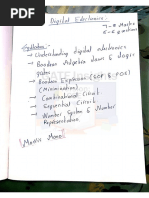 Digital Electronics:
7-8 Marks
5-6 questions
Syllabus:-
→ Understanding digital electronics
→ Boolean Algebra laws & logic
gates
→ Boolean Expression (SOP & POS)
(Minimization)
→ Combinational Circuit
→ Sequential Circuit
→ Number System & Number
Representation